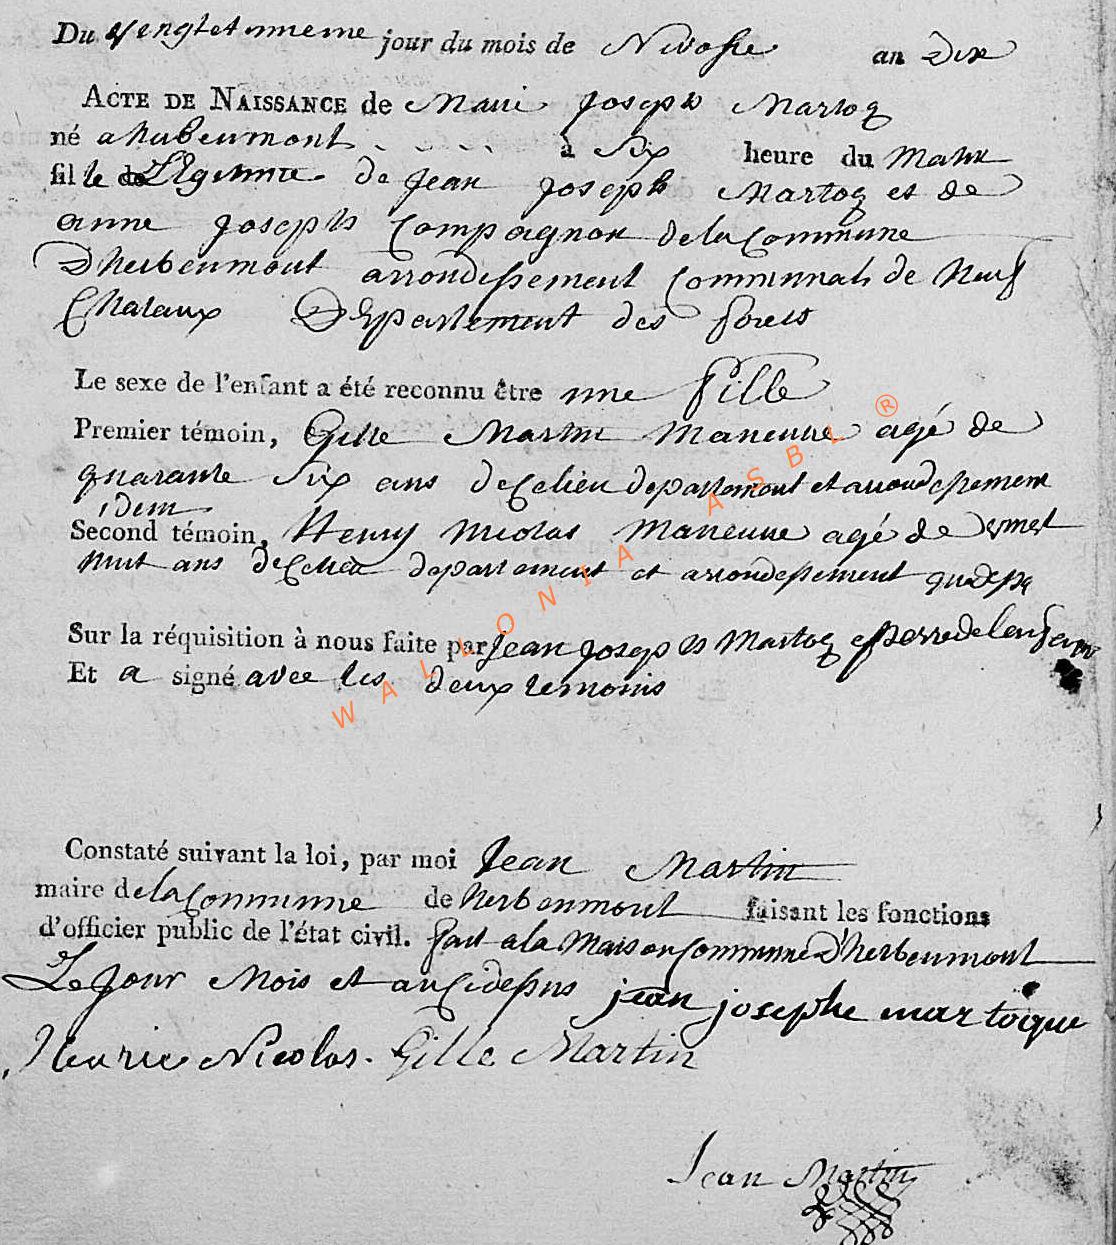 Du vengtetunieme jour du mois de Nivosse an Dix
ACTE DE NAISSANCE de Marie Joseph Martoq
né a herbeumont à Six heure du Matin
fille de Legitime de Jean Joseph Martoq et de
anne Joseph Compagnon de la Commune
Dherbeumont arrondissement Communals de Neuf
Chataux Departement des forets
Le sexe de l'enfant a été reconnu être une fille
Premier témoin, Gille Martin Maneuvre agé de
quarante Six ans de Ce lieu departement et arrondessement
idem
Second témoin, Henry Nicolas Maneuvre agé de vinet
huit ans de Ce lieu departement et arrondessement
Sur la réquisition à nous faite par Jean Joseph Martoq perre de lenfant
Et a signé avec les deux temonis
Constaté suivant la loi, par moi Jean Martin
maire de la Commune de herbeumont faisant les fonctions
d'officier public de l'état civil. fait a la Maison Commune D'herbeumont
Le Jour Mois et an Cidessus jean josephe martoque
Henrie Nicolas. Gille Martin
Jean Martin
WALLONIA ASBL ®